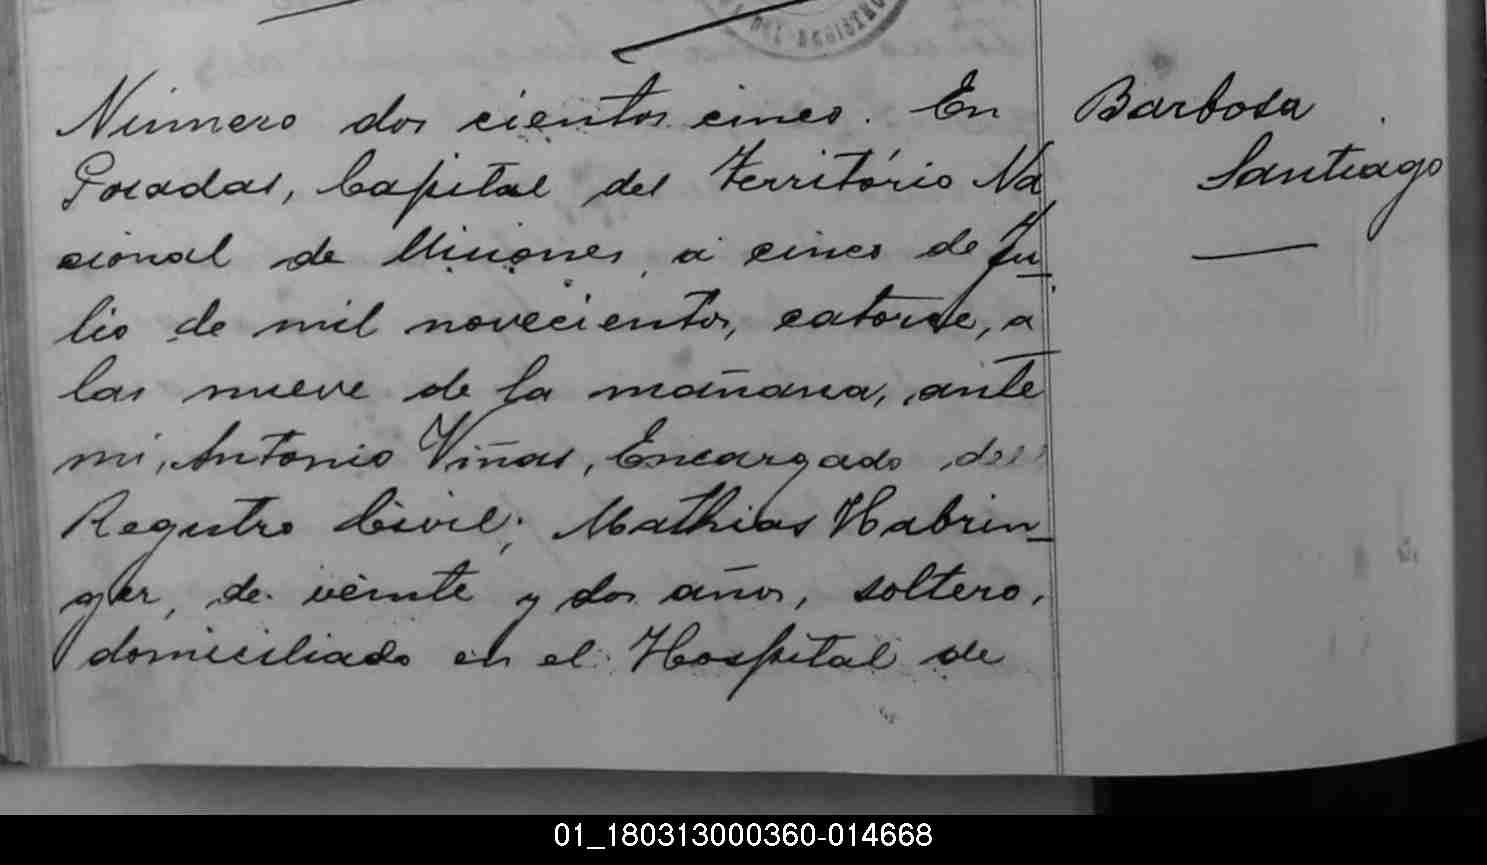 DEL REGISTRO
Número dos cientos cinco. En
Posadas, Capital del Território Na
cional de Misiones, á cinco de Ju-
lio de mil novecientos, catorce, a
las nueve de la mañana, ante
mi, Antonio Viñas, Encargado del
Registro Civil; Mathias Habrin-
ger, de veinte y dos años, soltero,
domiciliado en el Hospital de
Barbosa
Santiago
01_180313000360-014668